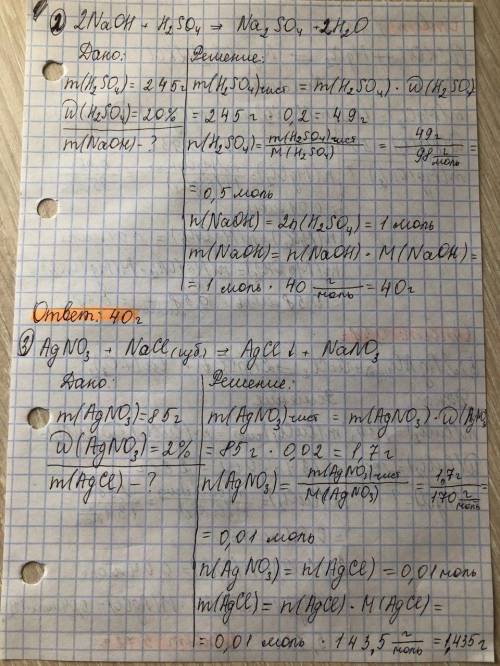 ② 2NaOH + H₂SO₄ ⇒ Na₂SO₄ + 2H₂O
Дано:
m(H₂SO₄) = 245г
ω(H₂SO₄) = 20%
m(NaOH) - ?
Решение:
m(H₂SO₄)чист = m(H₂SO₄) · ω(H₂SO₄)
= 245г · 0,2 = 49г
n(H₂SO₄) = m(H₂SO₄)чист / M(H₂SO₄) = 49г / 98 г/моль =
= 0,5 моль
n(NaOH) = 2n(H₂SO₄) = 1 моль
m(NaOH) = n(NaOH) · M(NaOH) =
= 1 моль · 40 г/моль = 40г
Ответ: 40г
③ AgNO₃ + NaCl(изб) ⇒ AgCl↓ + NaNO₃
Дано:
m(AgNO₃) = 85г
ω(AgNO₃) = 2%
m(AgCl) - ?
Решение:
m(AgNO₃)чист = m(AgNO₃) · ω(AgNO₃)
= 85г · 0,02 = 1,7г
n(AgNO₃) = m(AgNO₃)чист / M(AgNO₃) = 1,7г / 170 г/моль =
= 0,01 моль
n(AgNO₃) = n(AgCl) = 0,01 моль
m(AgCl) = n(AgCl) · M(AgCl) =
= 0,01 моль · 143,5 г/моль = 1,435г